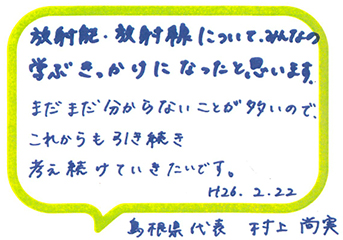 放射能・放射線について、みんなの
学ぶきっかけになったと思います。
まだまだ分からないことが多いので、
これからも引き続き
考え続けていきたいです。
H26.2.22
島根県代表 村上尚実